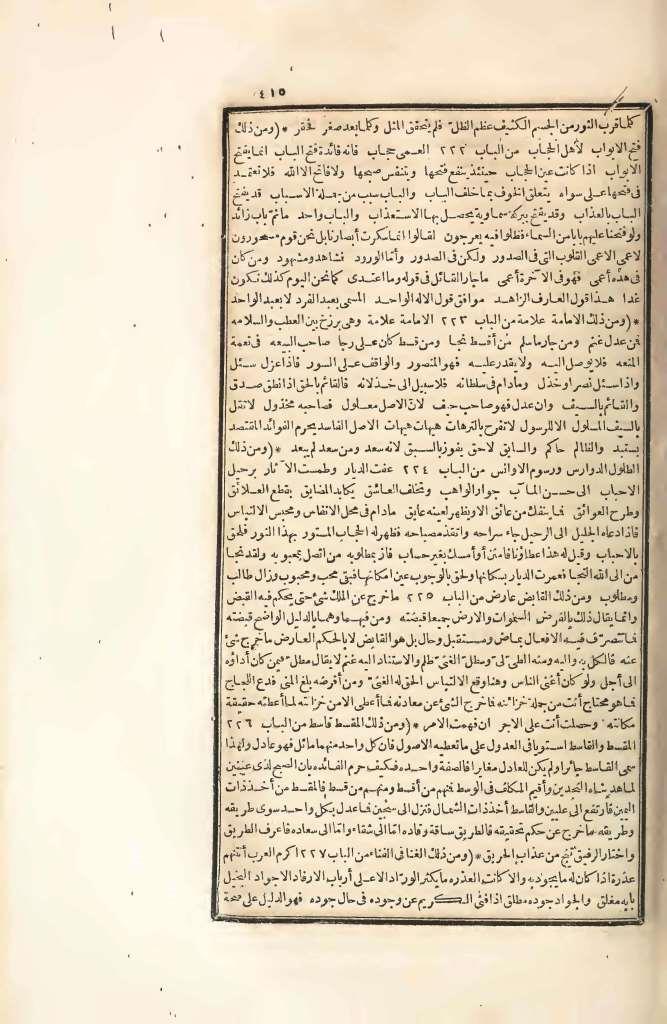 ٤١٥
كلما قرب النور من الجسم الكثيف عظم الظل فلم يتحقق المثل وكلما بعد صغر فحقر *(ومن ذلك
فتح الابواب لأهل الحجاب من الباب ٢٢٢ العمى حجاب فانه فائدة فتح الباب انما يفتح
الابواب اذا كانت عين الحجاب حينئذ ينفع فتحها ويتنفس صبحها ولا فاتح الا الله فلا تعتمد
فى فتحها على سواه يتعلق الخوف بما خلف الباب والباب سبب من جملة الاسباب قد يفتح
الباب بالعذاب وقد يفتح ببركة سماوية يحصل بها الاستعذاب والباب واحد ماثم باب زائد
ولو فتحنا عليهم بابا من السماء فظلوا فيه يعرجون لقالوا انما سكرت أبصارنا بل نحن قوم مسحورون
لاعمى الاعمى القلوب التى فى الصدور ولكن فى الصدور وأما الورود فشاهد ومشهود ومن كان
فى هذه أعمى فهو فى الآخرة أعمى ماجار القائل فى قوله وما اعتدى كما نحن اليوم كذلك نكون
غدا هذا قول العارف الزاهد موافق قول الاله الواحد المسمى بعبد الفرد لا بعبد الواحد
*(ومن ذلك الامامة علامة من الباب ٢٢٣ الامامة علامة وهى برزخ بين العطب والسلامه
فمن عدل غنم ومن جار ما سلم من أقسط نجا ومن قسط كان على رجا صاحب البيعه فى نعمة
المنعه فلا يوصل اليه ولا يقدر عليه فهو المنصور والواقف على السور فاذا عزل سئل
واذا سئل نصر او خذل ومادام فى سلطانه فلا سبيل الى خذلانه فالقائم بالحق اذا نطق صدق
والقائم بالسيف وان عدل فهو صاحب حيف لان الاصل معلول فصاحبه مخذول لا تقل
بالسيف المسلول الا للرسول لا تفرح بالترهات هيهات هيهات الاصل الفاسد يحرم الفوائد المقتصد
يستبد والظالم حاكم والسابق لاحق يفوز بالسبق لانه سعد ومن سعد لم يبعد *(ومن ذلك
الطلول الدوارس ورسوم الاوانس من الباب ٢٢٤ عفت الديار وطمست الآثار برحيل
الاحباب الى حسن المآب جوار الواهب وتخلف العاشق يكابد المضايق بقطع العلائق
وطرح العوائق فما ينفك من عائق الا ويظهر لعينه عايق مادام فى محل الانفاس ومحبس الالتباس
فاذا دعاه الجليل الى الرحيل جاء سراحه واتقد مصباحه فظهر له الحجاب المستور بهذا النور فلحق
بالاحباب وقيل له هذا عطاؤنا فامنن أو أمسك بغير حساب فاز بمطلوبه من اتصل بمحبوبه ولقد نجا
من الى الله التجا فعمرت الديار بسكانها ولحق بالوجوب عين امكانها فبقى محب ومحبوب وزال طالب
ومطلوب ومن ذلك القابض عارض من الباب ٢٢٥ ماخرج عن الملك شئ حتى يحكم فيه القبض
وانما يقال ذلك بالفرض السموات والارض جميعا قبضته ومن فيهما وهما بالدليل الواضح قبضته
فما تتصرف فيه الافعال بماض ومستقبل وحال بل هو القابض لا بالحكم العارض ماخرج شئ
عنه فالكل به واليه ومنه الطى لى ومطل الغنى ظلم والاستناد اليه غنم لا يقال مطل فيمن كان أداؤه
الى أجل ولو كان أغنى الناس وهنا وقع الالتباس الحق له الغنى ومن أقرضه بلغ المنى فدع اللجاج
فما هو محتاج أنت من جملة خزائنه فما خرج الشئ عن معادنه فما أعطى الا من خزانته لما أعطته حقيقة
مكانته وحصلت أنت على الاجر ان فهمت الامر *(ومن ذلك المقسط قاسط من الباب ٢٢٦
المقسط والقاسط استويا فى العدول على ما تعطيه الاصول فان كل واحد منهما مائل فهو عادل ولهذا
سمى القاسط جائرا ولم يكن للعادل مغايرا فالصفة واحده فكيف حرم الفائده بان الصبح لذى عينين
لما هديناه النجدين وأقيم المكلف فى الوسط فمنهم من أقسط ومنهم من قسط فالمقسط من أخذ ذات
اليمين فارتفع الى عليين والقاسط أخذ ذات الشمال فنزل الى سجين فما عدل بكل واحد سوى طريقه
وطريقه ماخرج عن حكم تحقيقه فالطريق ساقه وقاده اما الى شقاء واما الى سعاده فاعرف الطريق
واختار الرفيق تنج من عذاب الحريق *(ومن ذلك الغنا فى الفناء من الباب ٢٢٧ اكرم العرب أتمهم
عذرة اذا كان له ما يجود به والا كانت العذره ما يكثر الوراد الا على أرباب الارفاد الاجواد البخيل
بابه مغلق والجواد جوده مطلق اذا فنى الكريم عن وجوده فى حال جوده فهو الدليل على صحة